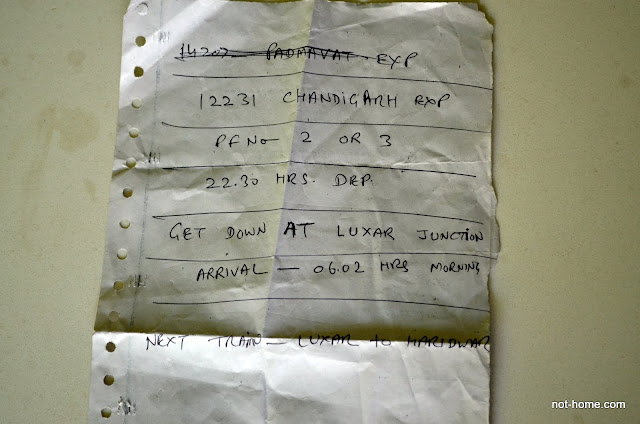 14207 PADMAVAT EXP
12231 CHANDIGARH EXP
PF No 2 OR 3
22.30 HRS. DEP.
GET DOWN AT LUXAR JUNCTION
ARRIVAL — 06.02 HRS MORNING
NEXT TRAIN — LUXAR to HARIDWAR
not-home.com